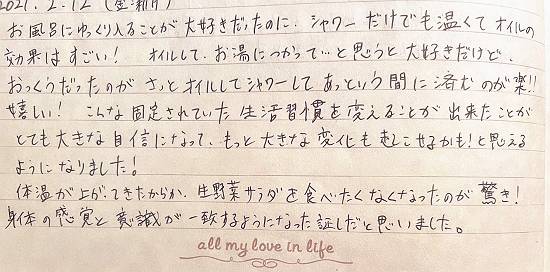 2021. 2. 12
お風呂にゆっくり入ることが大好きだったのに、シャワーだけでも温くてオイルの
効果はすごい! オイルして、お湯につかって…と思うと大好きだけど、
おっくうだったのが さっとオイルしてシャワーして あっという間に済むのが楽!!
嬉しい! こんな固定されていた生活習慣を変えることが出来たことが
とても大きな自信になって、もっと大きな変化も起こせるかも!と思える
ようになりました!
体温が上がってきたからか、生野菜サラダを食べたくなくなったのが驚き!
身体の感覚と意識が一致するようになった証しだと思いました。
all my love in life